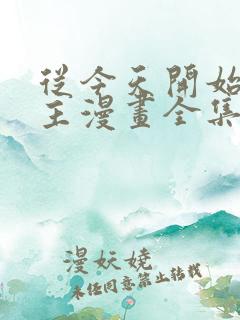 從今天開始
王漫畫全集
漫妖嬈
未經同意禁止轉載